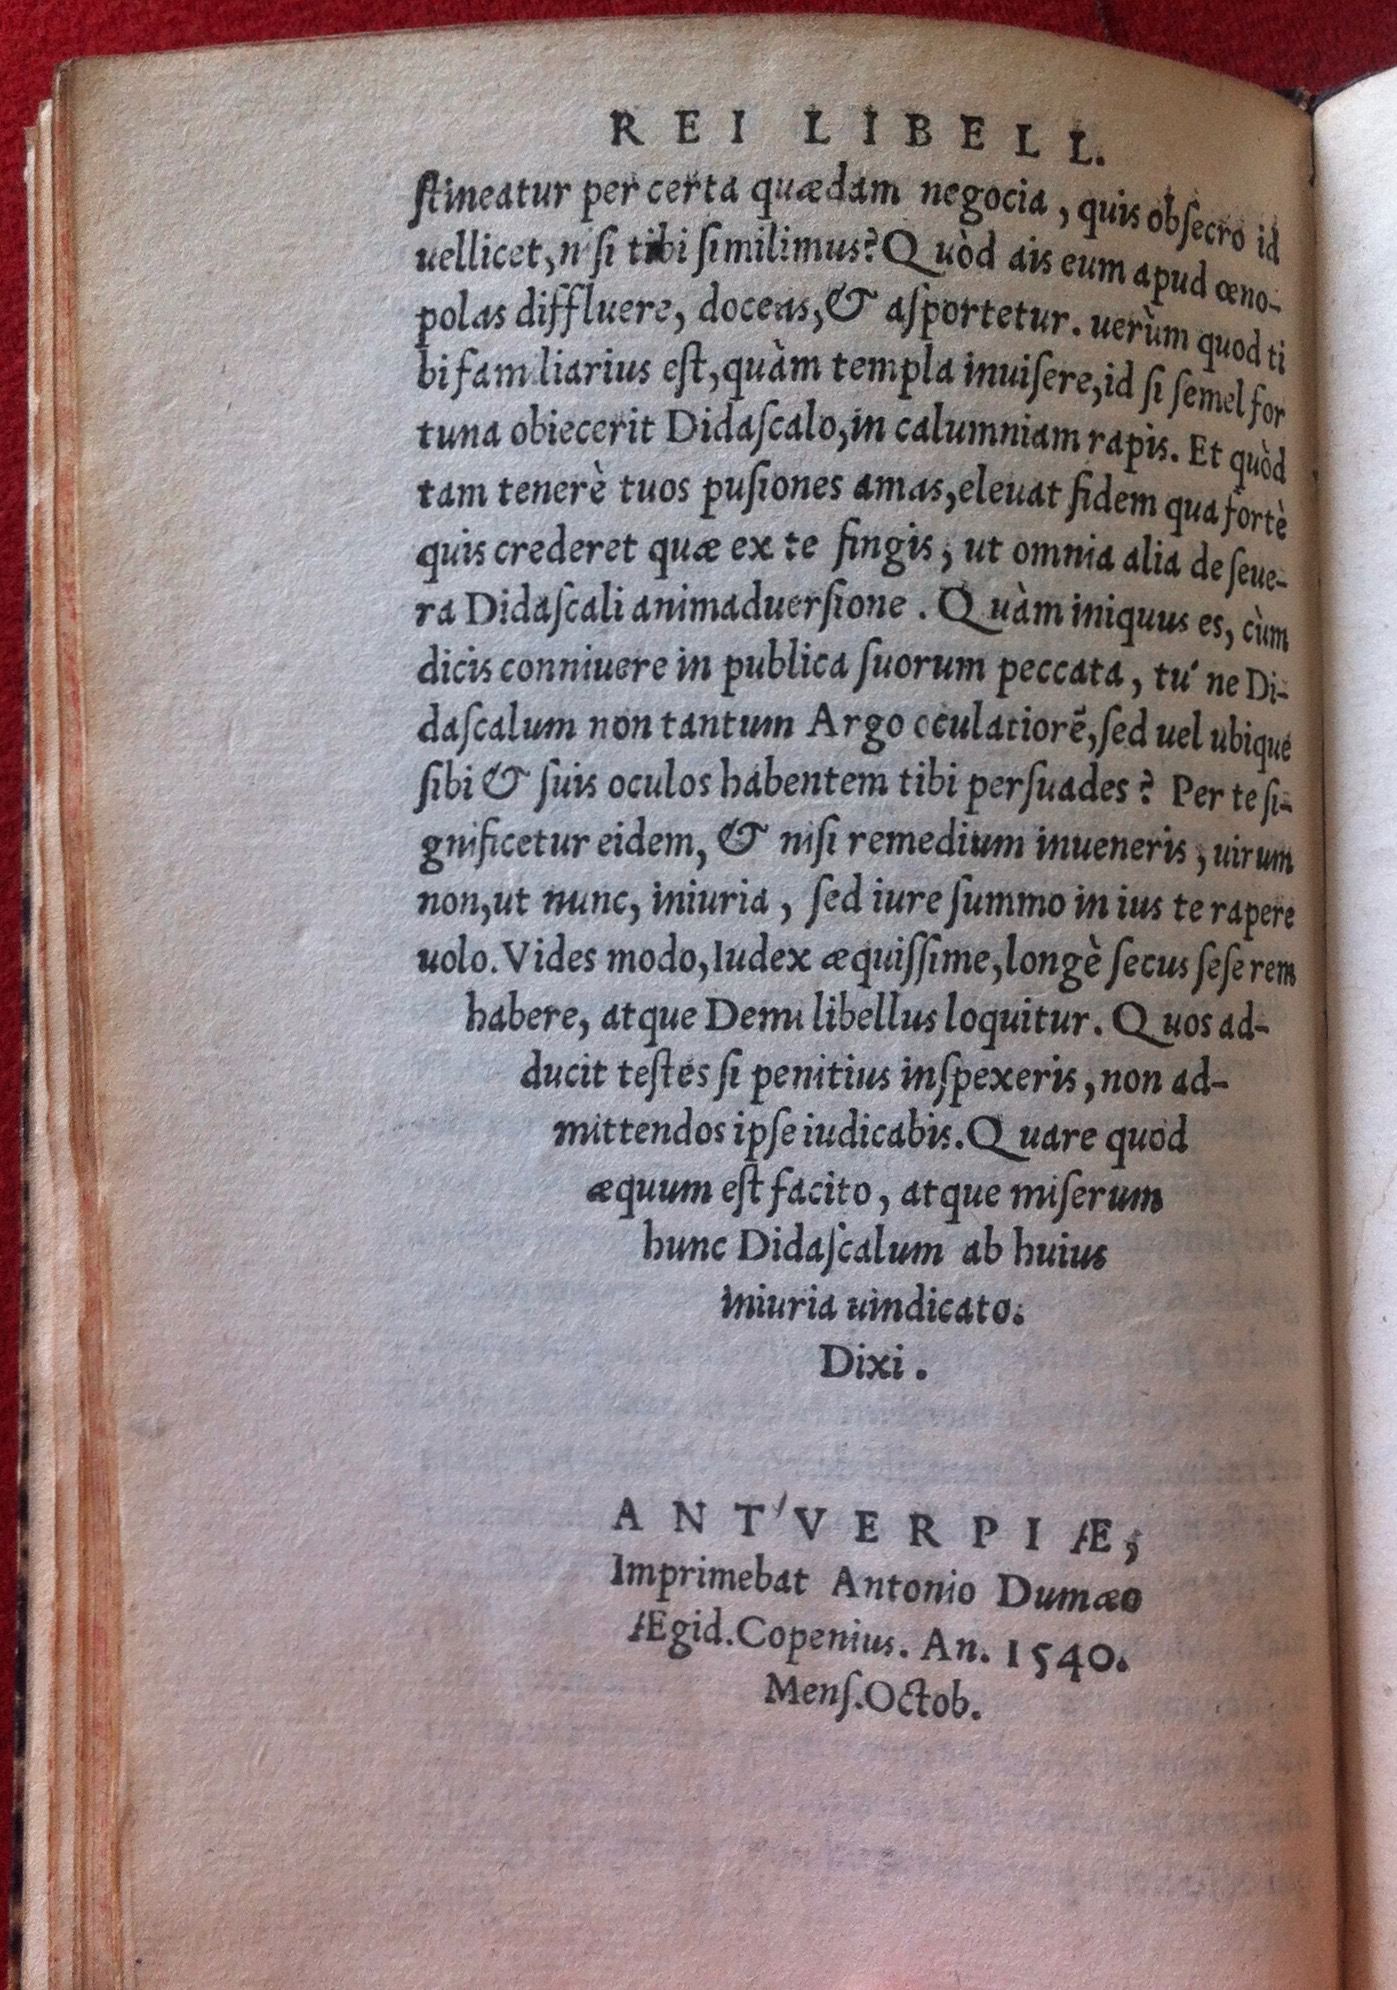 REI LIBELL.
ſtineatur per certa quædam negocia, quis obſecro id
uellicet, niſi tibi ſimilimus? Quòd ais eum apud œno-
polas diffluere, doceas, & aſportetur. uerùm quod ti
bi familiarius eſt, quàm templa inuiſere, id ſi ſemel for
tuna obiecerit Didaſcalo, in calumniam rapis. Et quòd
tam tenerè tuos puſiones amas, eleuat fidem qua fortè
quis crederet quæ ex te fingis, ut omnia alia de ſeue-
ra Didaſcali animaduerſione. Quàm iniquus es, cùm
dicis conniuere in publica ſuorum peccata, tu' ne Di-
daſcalum non tantum Argo oculatiorẽ, ſed uel ubique
ſibi & ſuis oculos habentem tibi perſuades? Per te ſi-
gnificetur eidem, & niſi remedium inueneris, uirum
non, ut nunc, iniuria, ſed iure ſummo in ius te rapere
uolo. Vides modo, Iudex æquiſſime, longè ſecus ſeſe rem
habere, atque Demi libellus loquitur. Quos ad-
ducit teſtes ſi penitius inſpexeris, non ad-
mittendos ipſe iudicabis. Quare quod
æquum eſt facito, atque miſerum
hunc Didaſcalum ab huius
iniuria uindicato.
Dixi.
ANTVERPIÆ,
Imprimebat Antonio Dumæo
Ægid. Copenius. An. 1540.
Menſ. Octob.